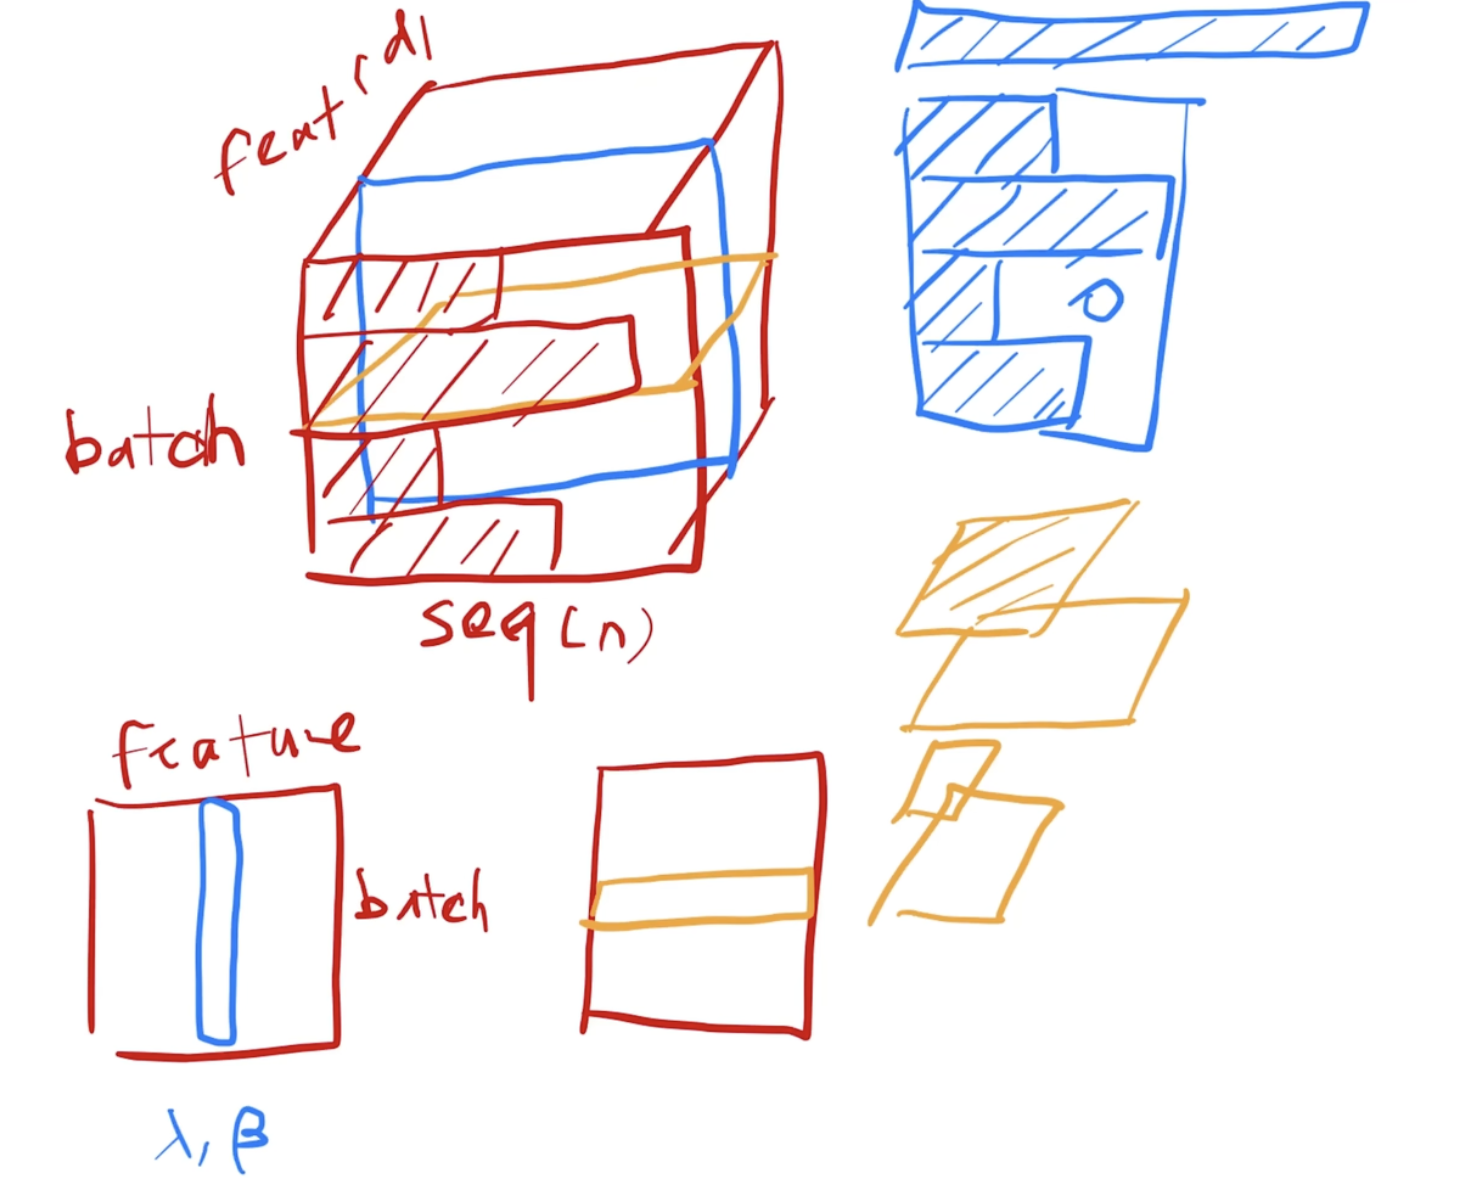 feat(d)
batch
0
seq(n)
feature
batch
λ, β